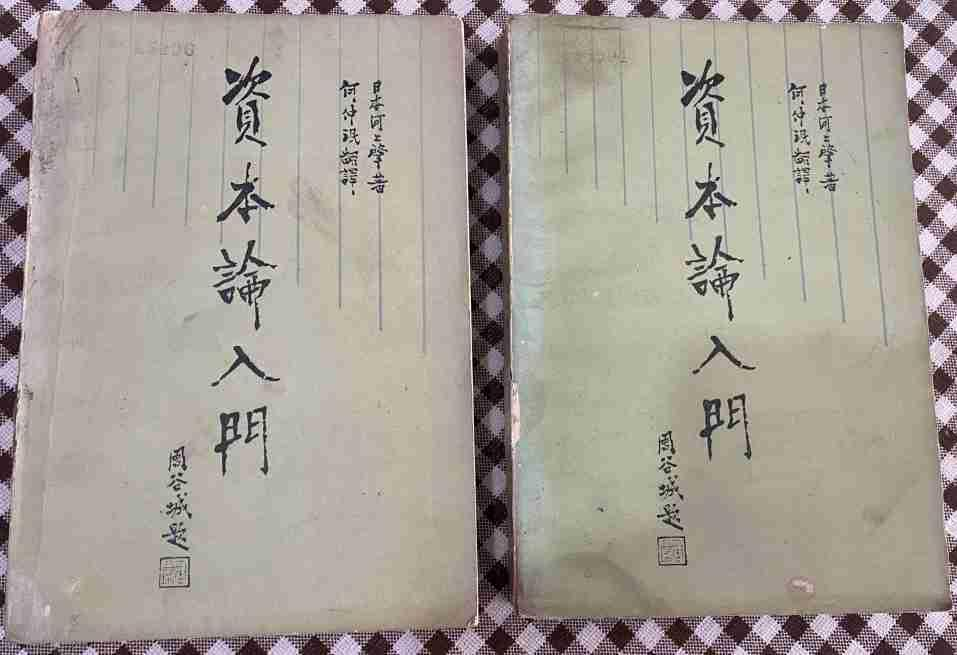 日本河上肇著
何仲珉翻譯
資本論入門
周谷城題
日本河上肇著
何仲珉翻譯
資本論入門
周谷城題